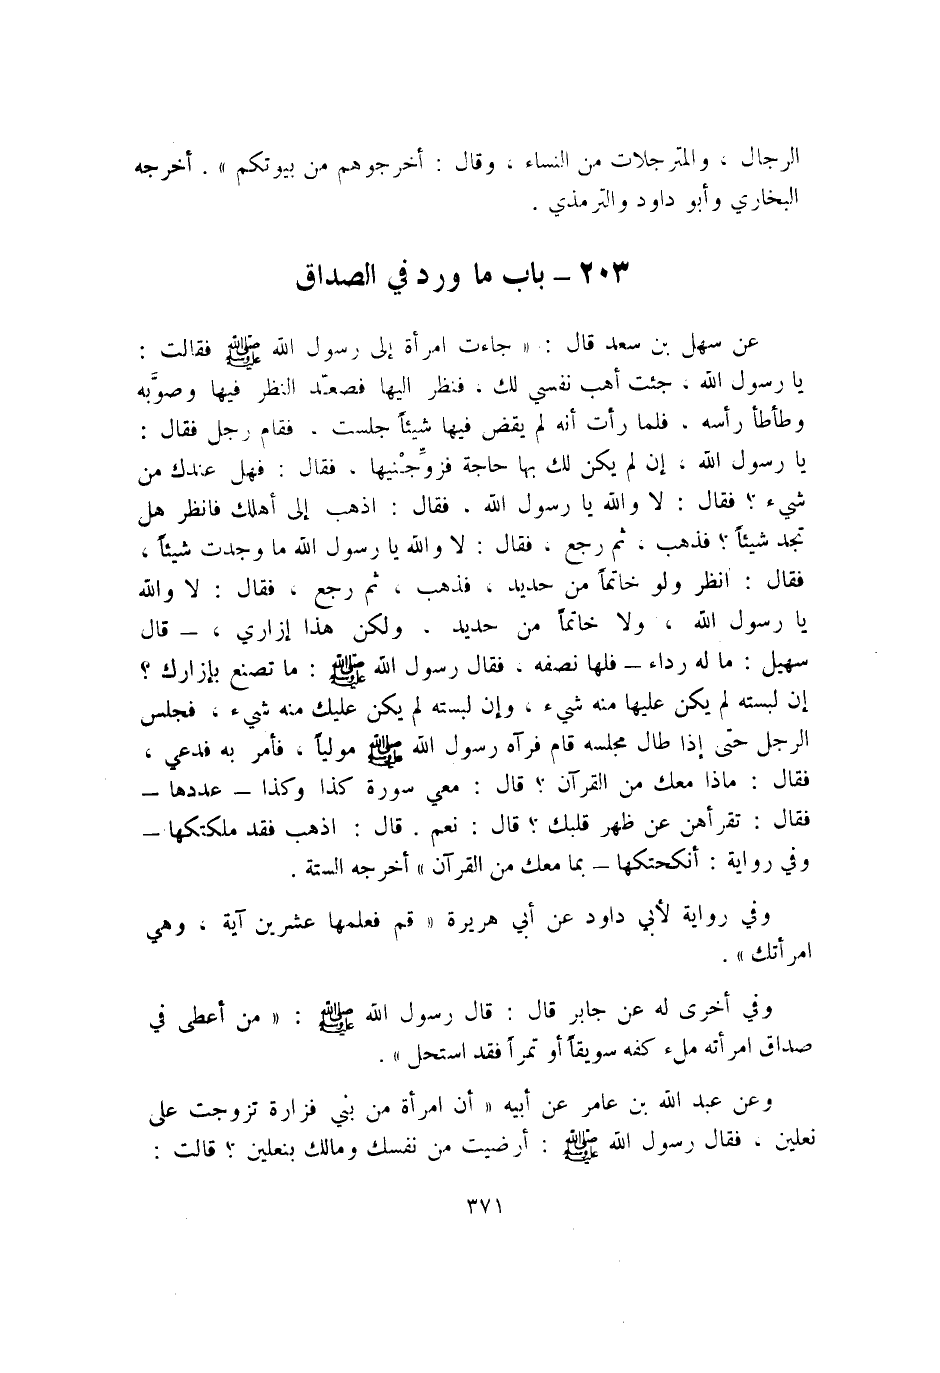 الرجال ، والمترجلات من النساء ، وقال : أخرجوهم من بيوتكم » . أخرجه
البخاري وأبو داود والترمذي .
٢٠٣ – باب ما ورد في الصداق
عن سهل بن سعد قال : « جاءت امرأة إلى رسول الله ﷺ فقالت :
يا رسول الله ، جئت أهب نفسي لك ، فنظر اليها فصعّد النظر فيها وصوَّبه
وطأطأ رأسه . فلما رأت أنه لم يقض فيها شيئاً جلست . فقام رجل فقال :
يا رسول الله ، إن لم يكن لك بها حاجة فزوِّجْنيها . فقال : فهل عندك من
شيء ؟ فقال : لا والله يا رسول الله . فقال : اذهب إلى أهلك فانظر هل
تجد شيئاً ؟ فذهب ، ثم رجع ، فقال : لا والله يا رسول الله ما وجدت شيئاً ،
فقال : انظر ولو خاتماً من حديد ، فذهب ، ثم رجع ، فقال : لا والله
يا رسول الله ، ولا خاتماً من حديد . ولكن هذا إزاري ، – قال
سهيل : ما له رداء – فلها نصفه ، فقال رسول الله ﷺ : ما تصنع بإزارك ؟
إن لبسته لم يكن عليها منه شيء ، وإن لبسته لم يكن عليك منه شيء ، فجلس
الرجل حتى إذا طال مجلسه قام فرآه رسول الله ﷺ مولياً ، فأمر به فدعي ،
فقال : ماذا معك من القرآن ؟ قال : معي سورة كذا وكذا – عددها –
فقال : تقرأهن عن ظهر قلبك ؟ قال : نعم . قال : اذهب فقد ملكتكها –
وفي رواية : أنكحتكها – بما معك من القرآن » أخرجه الستة .
وفي رواية لأبي داود عن أبي هريرة « قم فعلمها عشرين آية ، وهي
امرأتك » .
وفي أخرى له عن جابر قال : قال رسول الله ﷺ : « من أعطى في
صداق امرأته ملء كفه سويقاً أو تمراً فقد استحل » .
وعن عبد الله بن عامر عن أبيه « أن امرأة من بني فزارة تزوجت على
نعلين ، فقال رسول الله ﷺ : أرضيت من نفسك ومالك بنعلين ؟ قالت :
٣٧١